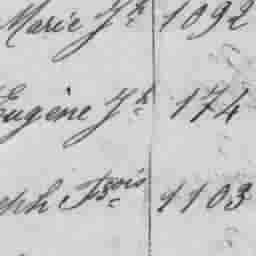 Marie Jh 1092
Eugène Jh 174
eph Fçois 1103